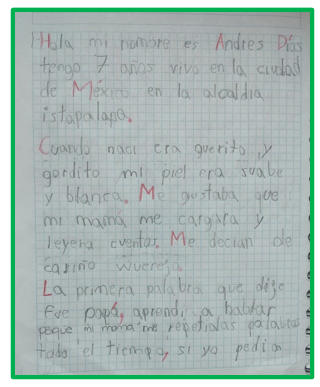 Hola mi nombre es Andres Días
tengo 7 años vivo en la ciudad
de México en la alcaldía
istapalapa.
Cuando naci era guerito, y
gordito mi piel era suabe
y blanca. Me gustaba que
mi mamá me cargara y
leyera cuentos. Me decian de
cariño
La primera palabra que dije
Fue papá, aprendi a hablar
peque mi mamá me repetialas palabras
todo el tiempo, si yo pedia